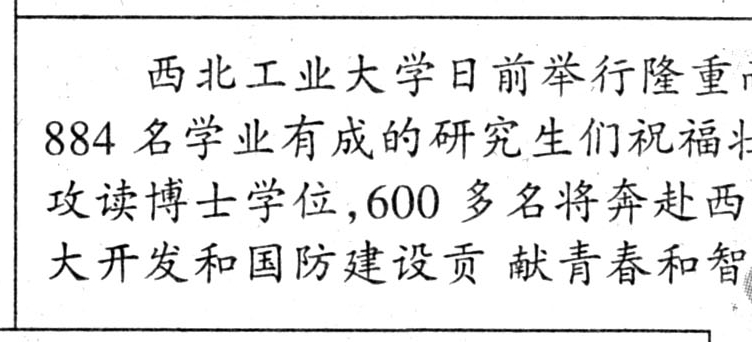 西北工业大学日前举行隆重
884 名学业有成的研究生们祝福
攻读博士学位,600 多名将奔赴西
大开发和国防建设贡 献青春和智